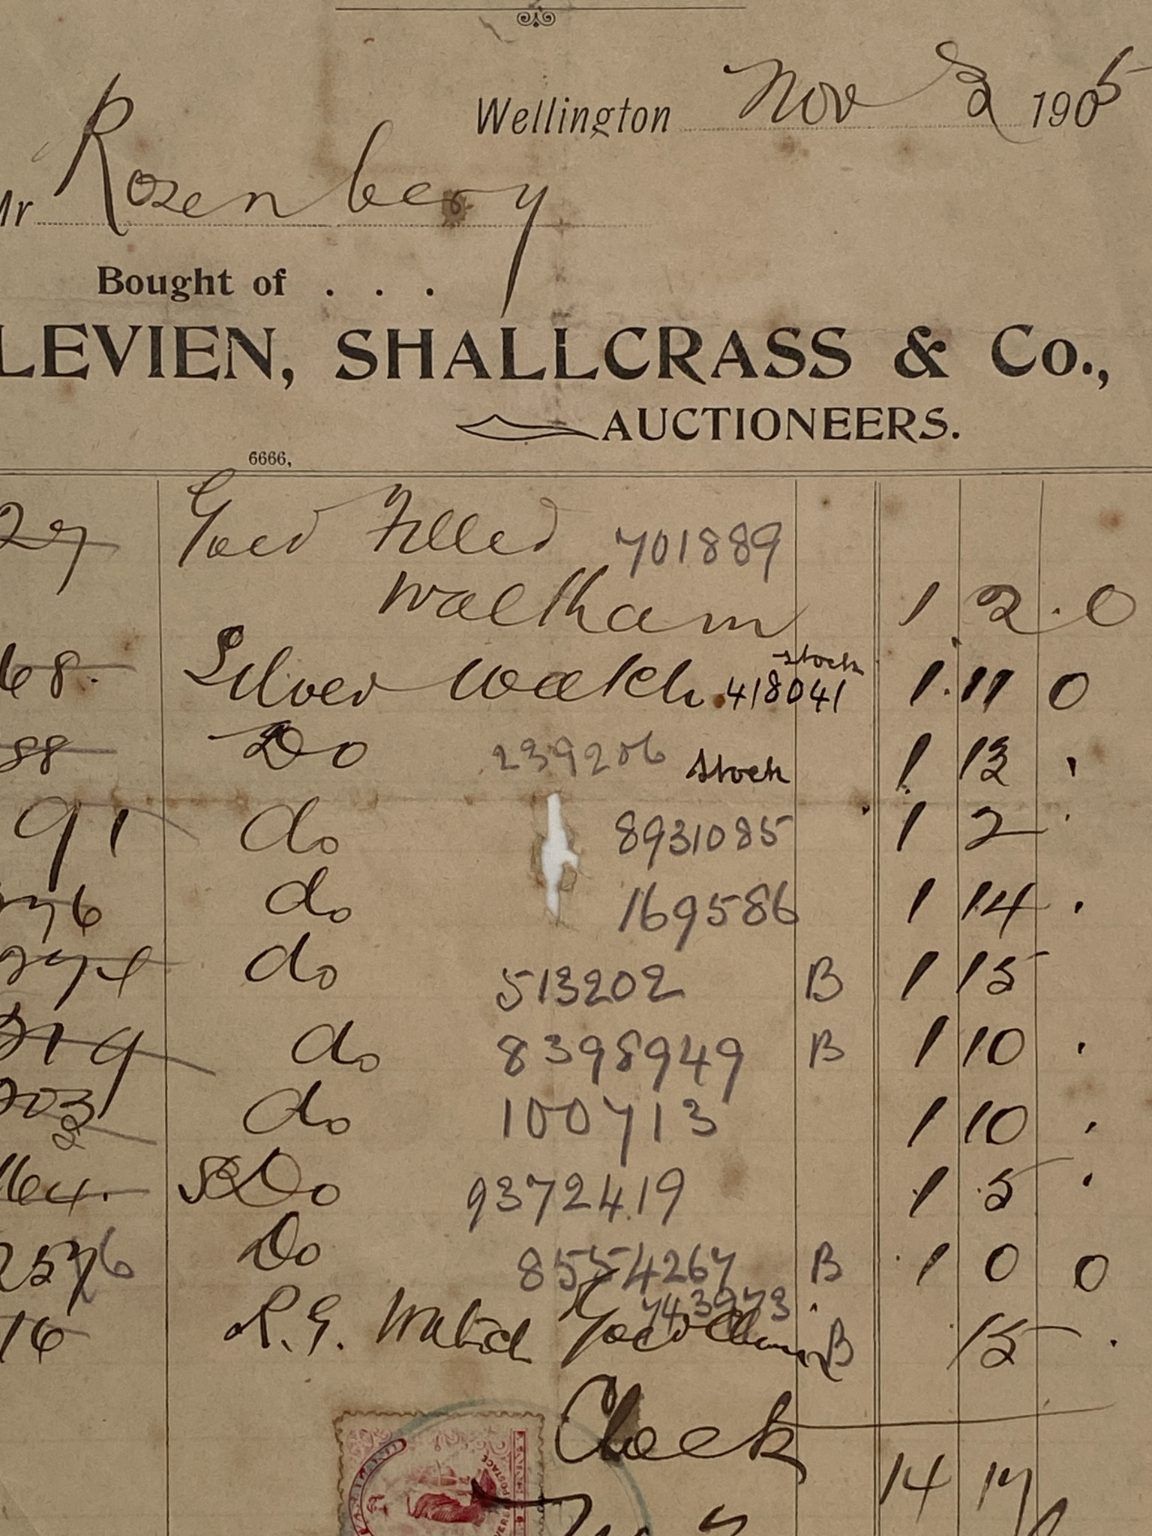 Wellington Nov 2 1905
Mr Rosenberg
Bought of . . .
LEVIEN, SHALLCRASS & Co.,
AUCTIONEERS.
6666,
27 Goed Filled 701889
Waltham 1 2 . 0
68. Silver Watch. 418041 stock 1 . 11 0
88 Do 239206 stock 1 13 .
91 do 8931085 1 2
do 169586 1 14 .
274 do 513202 B 1 15
319 do 8398949 B 1 10 .
203 do 100713 1 10 .
164. Do 9372419 1 5 .
257 6 Do 8554267 B 1 0 0
743973
16 R.G. Watch Goed Chain B 15 .
Clock
14 17
POSTAGE